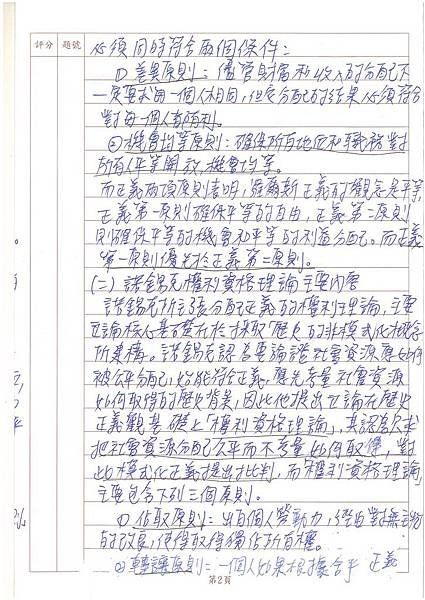 評分 題號
必須同時符合兩個條件：
(1) 差異原則：儘管財富和收入的分配不
一定要求每一個人相同，但分配的結果必須符合
對每一個人都有利。
(2) 機會均等原則：確保所有地位和職務對
所有人平等開放，機會均等。
而正義兩項原則表明，羅爾斯正義的觀念是平等，
正義第一原則確保平等的自由，正義第二原則
則確保平等的機會和平等的利益分配。而正義
第一原則優先於正義第二原則。
(二) 諾錫克權利資格理論主要內容
諾錫克所主張分配正義的權利理論，主要
立論核心是奠基於採取「歷史的非模式化」概念
所建構。諾錫克認為要論證社會資源應如何
被公平分配，始能符合正義，應先考量社會資源
如何取得的歷史背景，因此他提出立論在歷史
正義觀基礎上「權利資格理論」，其認為只求
把社會資源分配公平而不考量如何取得，對
此模式化正義提出批判，而「權利資格理論」
主要包含下列三個原則。
(1) 佔取原則：出自個人勞動力，經由對無主物
的改良，使得取得獨佔所有權。
(2) 轉讓原則：一個人如果根據合乎 正義
第2頁